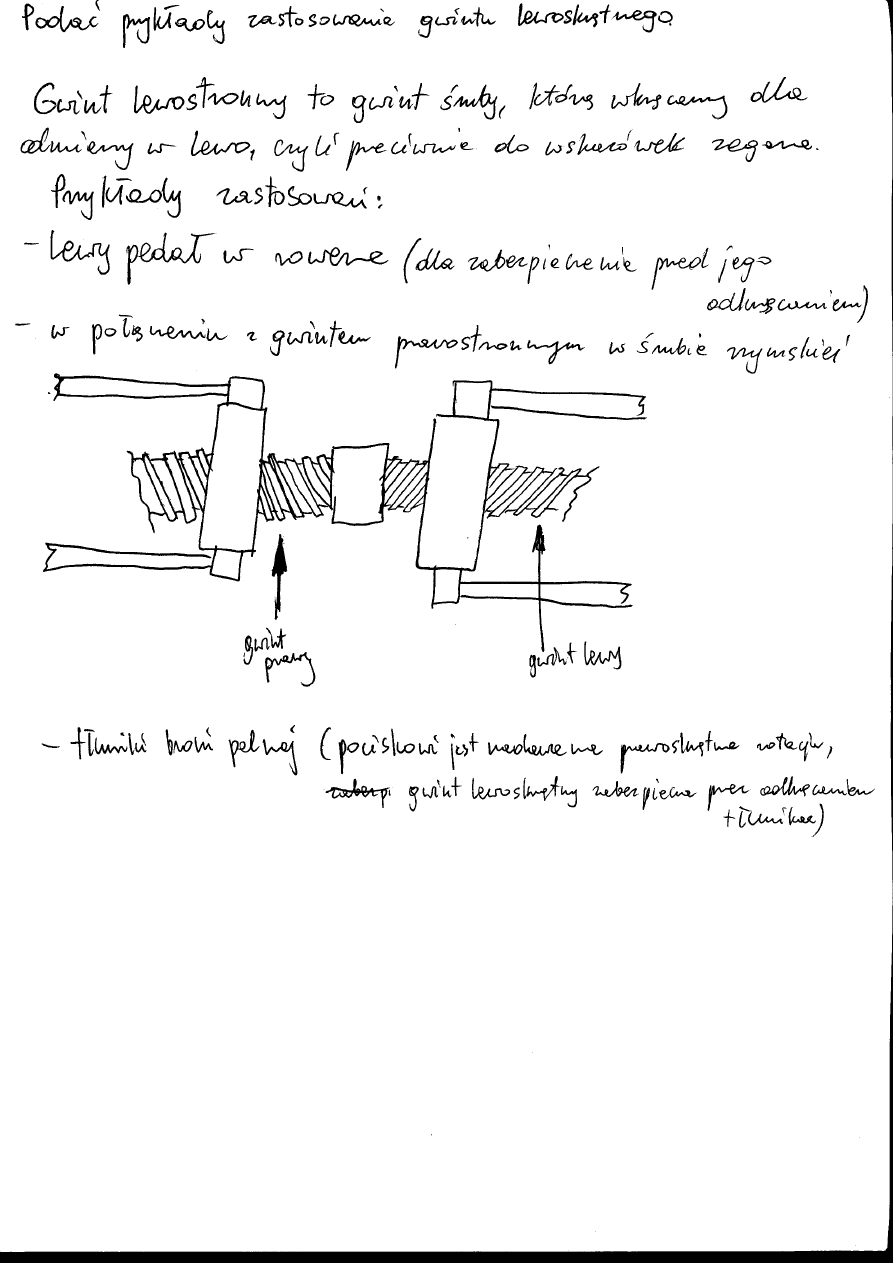 Podać przykłady zastosowania gwintu lewoskrętnego
Gwint lewostronny to gwint śruby, którą wkręcamy dla
odmiany w lewo, czyli przeciwnie do wskazówek zegara.
Przykłady zastosowań:
- Lewy pedał w rowerze (dla zabezpieczenia przed jego
odkręcaniem)
- w połączeniu z gwintem prawostronnym w śrubie rzymskiej
gwint
prawy
gwint lewy
- tłumiki broni palnej (pociskowi jest nadawana prawoskrętna rotacja,
zabezp gwint lewoskrętny zabezpiecza przez odkręceniem
tłumika)